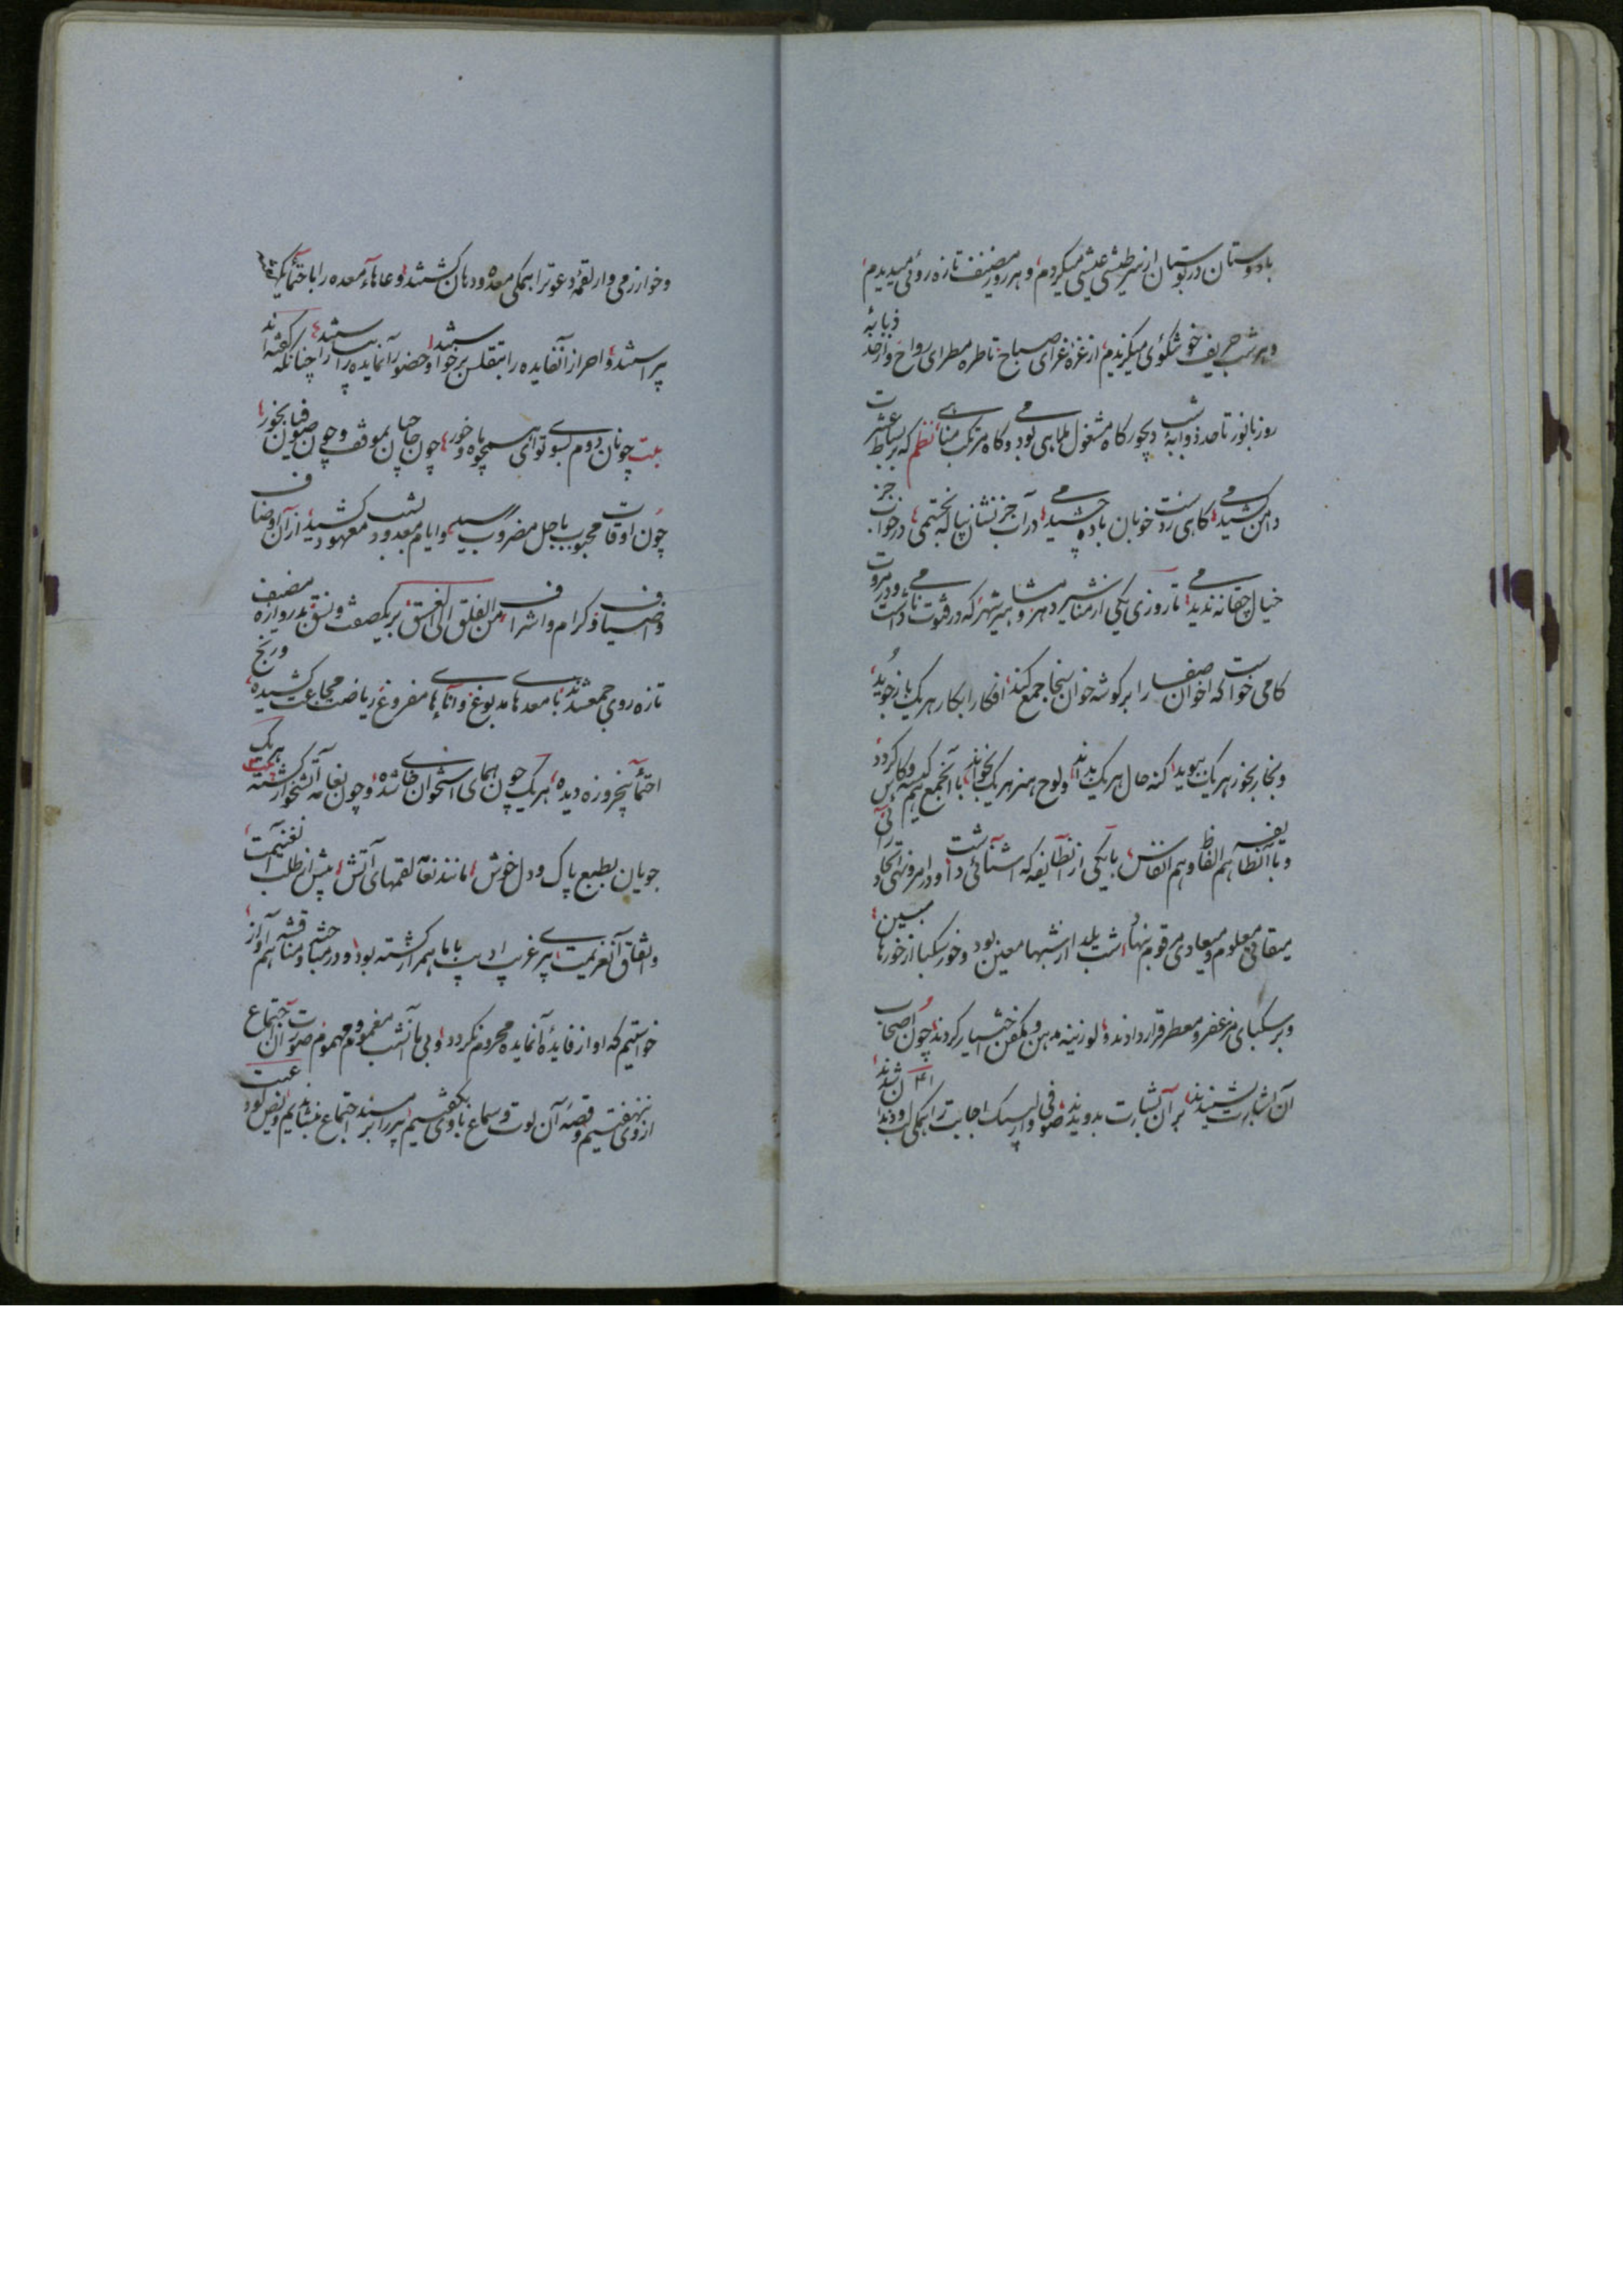 با دوستان در بوستان از سر طیشی عیشی میکردم و هر روز مضیف تازه روئی میدیدم
و هر شب حریف خوشگوئی میگزیدم از غره غرای صباح تا طره مطرای رواح و از خد ذبابهٔ
روز با نور تا حد ذوابهٔ شب دیجور گاه مشغول ملاهی بودمی و گاه مرتکب مناهی نظم گه بر بساط عشرت
دامن کشیدمی گاهی ز دست خوبان باده چشیدمی در آب جز نشان پیاله نجستمی در خواب جز
خیال چغانه ندیدمی تا روزی یکی از مشاهیر دهر و میر شهر که در فتوت نامی و در مروت
کامی خواست که اخوان صفا را بر گوشه خوان سنجا جمع کند افکار ابکار هر یک باز جوید
و بخار بخور هر یک ببوید کنه حال هر یک بداند و لوح هنر هر یک بخواند با آنجمع هم کیسه و کاس گردد
و با آنطایفه هم الفاظ و هم انفاس با یکی از آنطایفه که آشنائی داشت و در امروز نهی اتحاد
میقاتی معلوم و میعادی مرقوم بنهاد شب یلدا از شبها معین بود و خور سکبا از خورها مبین
و بر سکبای مزعفر و معطر قرار دادند و لوزینه مدهن و مکفن اختیار کردند چون اصحاب
آن اشارت بشنیدند بر آن بشارت بدویدند صوفی وار لبیک اجابت را همگی لب و دندان شدند
و خوارزمی وار لقمهٔ دعوت را همگی معده و دهان گشتند و عاهاء معده را با حتمأ
پیراستند و احراز آنفایده را بتقلس برخواستند و حضور آنمایده را بیاراستند چنانکه گفته اند
بیت چو نان دوم بسوی تو ای همچو ماه و خور چون حاجیان بموقف و چون صوفیان بخور
چون اوقات محبوب باجل مضروب رسید و ایام معدود بشب معهود کشید از آن اوصاف
و اضیاف کرام و اشراف من الفلق الی الغسق بر یکصف و نسق بدروازه مضیف
تازه روی جمع شدند با معدهای مدبوغ و امآءهای مفروغ ریاضت مجاعت کشیده و رنج
احتمآ پنجروزه دیده هر یک چون همای استخوان خای شده و چون نعامه آتشخوار گشته هر یک
جویان بطبع پاک و دل خوش مانند نعآ لقمهای آتش پیش از طلب نغنیمت
و اتفاق آنعزیمت پیر غریب ادیب با ما همراز گشته بود و در مباحثه و مناقشه هم آواز
خواستیم که او از فایدهٔ آنمایده محروم نگردد و بی ما آنشب مغموم و مهموم صورت آن اجتماع
از وی نهفتیم و قصهٔ آن لوت و سماع با وی بگفتیم پیر را بر مسند اجتماع بنشاندیم و نص لو دعیت